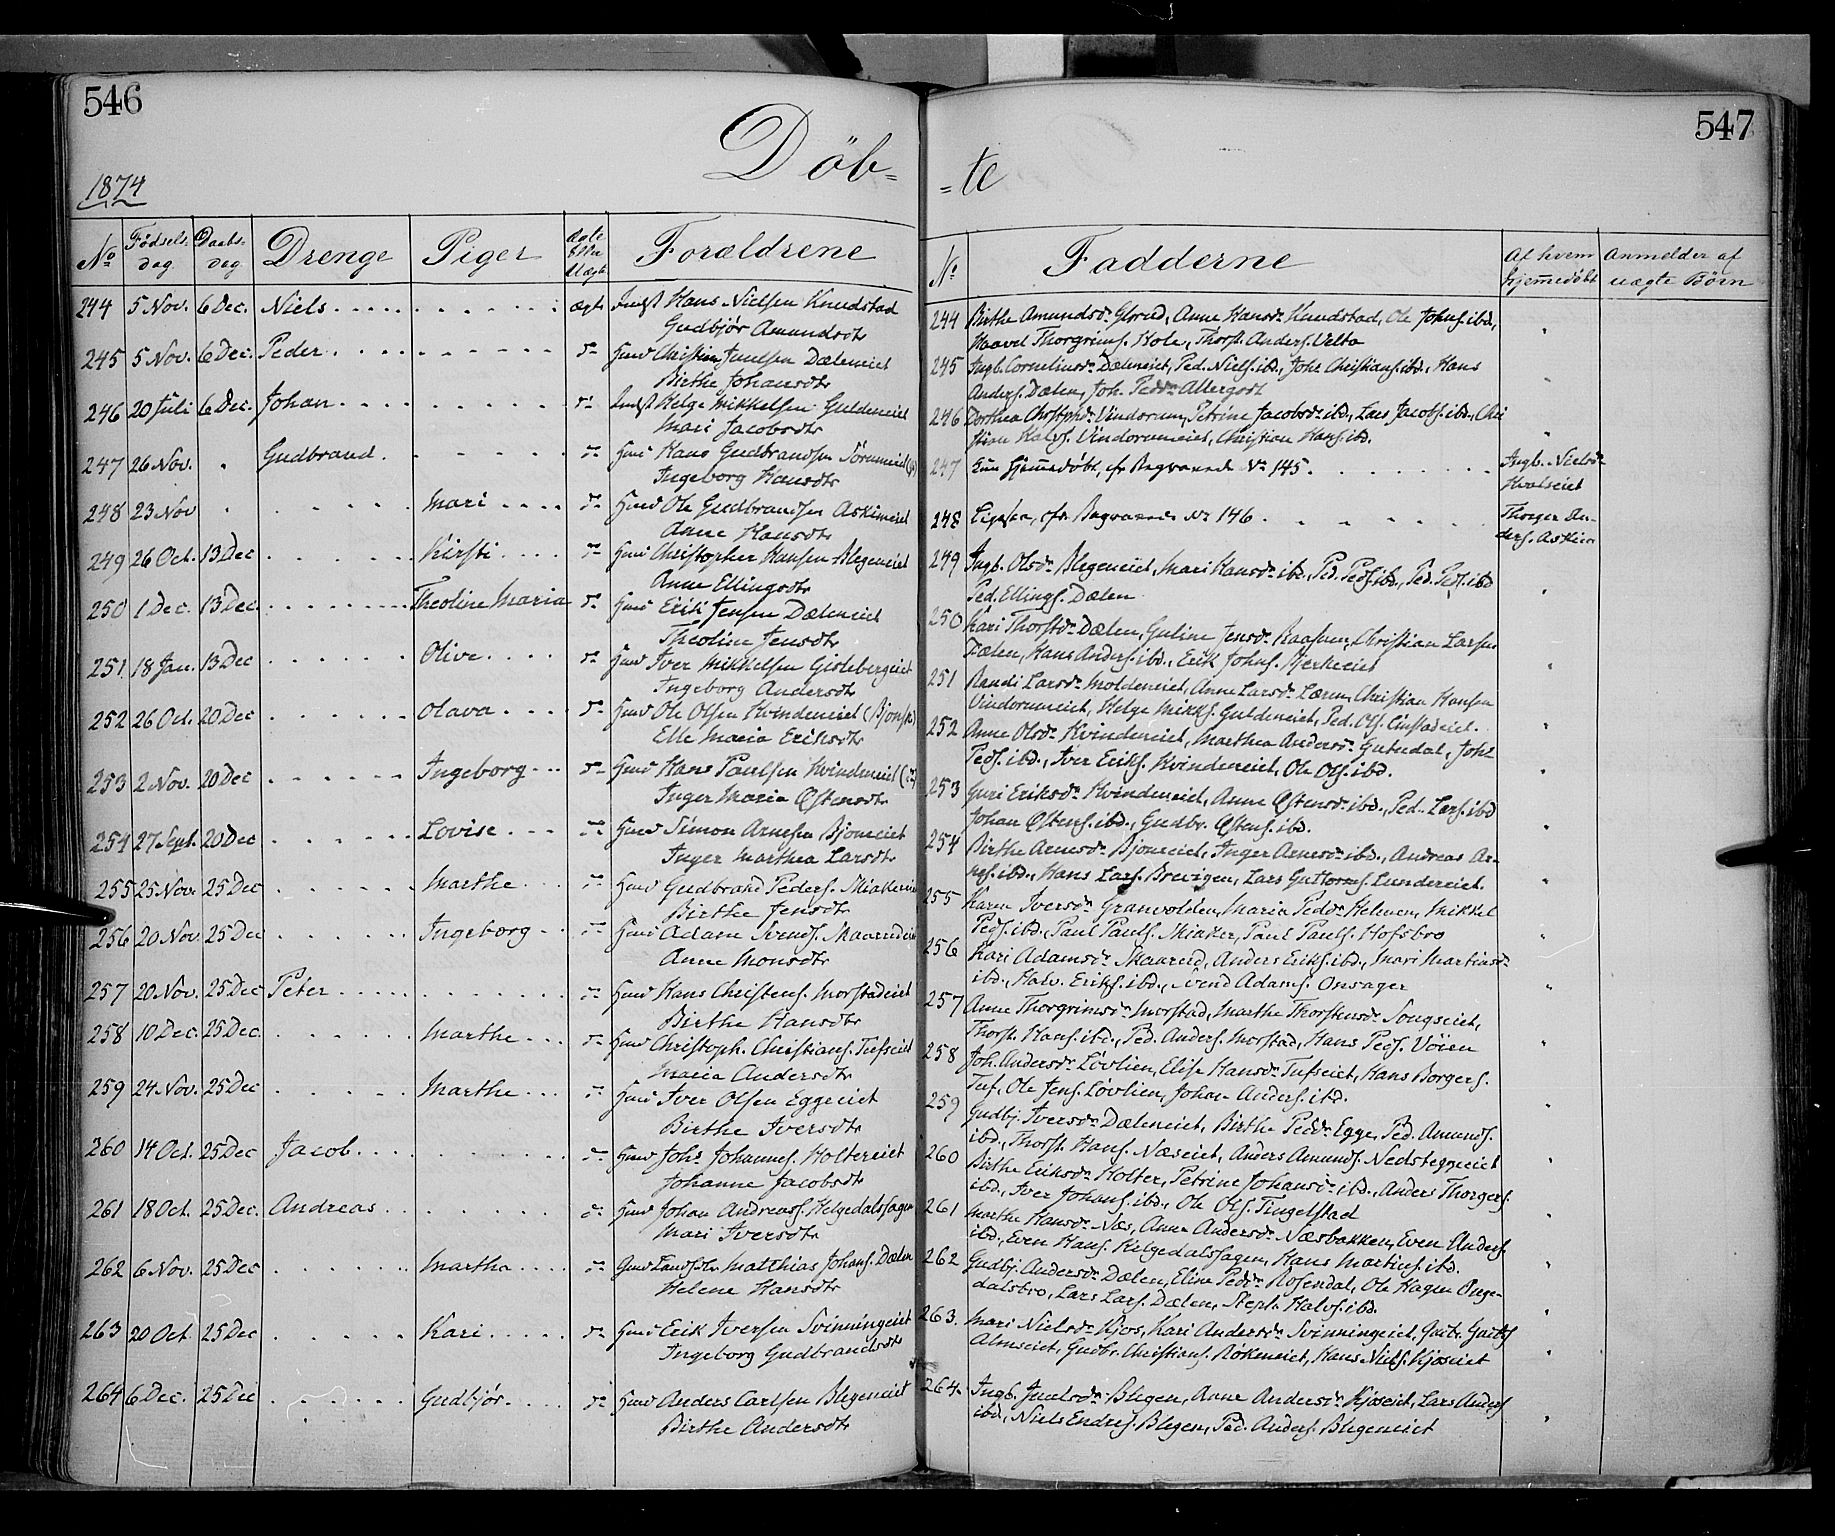 546
547
Döb=
=te
1874
No Fødsels dag Daabs- dag Drenge Piger Ægte Eller Uægte Forældrene
No Fadderne Af hvem hjemmedøbt Anmelder af uægte Börn
244 5 Nov. 6 Dec. Niels ægte Hans Nielsen Knudstad
Gudbjør Amundsdtr
245 5 Nov. 6 Dec. Peder Do Huusmd Dæleneiet
Birthe Johansdtr
246 20 Juli 6 Dec. Johan Do Helge Mikkelsen Guldeneiet
Mari Jacobsdtr
247 26 Nov. " Gudbrand Do Hans Gudbrandsen
Ingeborg Hansdtr
248 23 Nov " Mari Do Ole Gudbrandsen Askimeiet
Anne Hansdtr
249 26 Oct. 13 Dec Kirsti Do Christopher Hansen Blegeneiet
Anne Ellingsdtr
250 1 Dec. 13 Dec. Theoline Maria Do Erik Jensen Dæleneiet
Theoline Jensdtr
251 18 Jan. 13 Dec Olive Do Iver Mikkelsen Gislebergeiet
Ingeborg Andersdtr
252 26 Oct. 20 Dec Olava Do Ole Olsen Hvindeneiet
Elle Maria Eriksdtr
253 2 Nov. 20 Dec Ingeborg Do Hans Paulsen Hvindeneiet
Inger Maria Østensdtr
254 27 Sept. 20 Dec Lovise Do Simon Arnesen Bjoneeiet
Inger Marthea Larsdtr
255 25 Nov. 25 Dec Marthe Do Gudbrand Peders.
Birthe Jensdtr
256 20 Nov 25 Dec Ingeborg Do Adam Svends.
Anne Monsdtr
257 20 Nov. 25 Dec Peter Do Hans Christens. Morstadeiet
Birthe Hansdtr
258 10 Dec. 25 Dec. Marthe Do Christoph. Christians. Tufseiet
Maria Andersdtr
259 24 Nov. 25 Dec Marthe Do Iver Olsen Eggeeiet
Birthe Iversdtr
260 14 Oct. 25 Dec Jacob Do Johs Johannes. Holtereiet
Johanne Jacobsdtr
261 18 Oct. 25 Dec. Andreas Do Johan Andreass. Helgedalssagen
Mari Iversdtr
262 6 Nov. 25 Dec Marthe Do Matthias Johans. Dælen
Helene Hansdtr
263 20 Oct. 25 Dec Kari Do Erik Iversen Svinningeiet
Ingeborg Gudbrandsdtr
264 6 Dec. 25 Dec Gudbjør Do Anders Carlsen Blegeneiet
Birthe Andersdtr
244 Birthe Amundsdr Glorud, Anne Hansdr Knudstad, Ole Johns. ibd.,
Haavel Thorgrims. Hole, Thorst. Anders. Velta
245 Ingb. Corneliusdr Dæleneiet, Ped. Niels. ibd., Johs Christians. ibd., Hans
Anders. Dælen, Joh. Peddr
246 Dorthea Vindorum, Petrine Jacobsdr ibd., Lars Jacobs. ibd., Chri
stian Halvs. Vindorumeiet, Christian Hans. ibd.
247 hjemmedøbt, cfr No 145. Ingb. Nielsdr
Hvalseiet
248 cfr No 146. Thorger An-
ders. Askim
249 Ingb. Olsdr Blegeneiet, Mari Hansdr ibd., Ped. Peds. ibd., Ped. Peds. ibd
Ped. Ellings. Dælen
250 Kari Thorstdr Dælen, Guline Jensdr Christian Larsen
Dælen, Hans Anders. ibd., Erik Johns. Bjerkeeiet
251 Randi Larsdr Moldeneiet, Anne Larsdr Christian Hansen
Vindorumeiet, Helge Mikks. Guldeneiet, Ped. Ols.
252 Anne Olsdr Hvindeneiet, Marthea Andersdr Johs
Peds. ibd., Iver Eriks. Hvindeneiet, Ole Ols. ibd.
253 Guri Eriksdr Hvindeneiet, Anne Østensdr ibd., Ped. Lars. ibd
Johan Østens. ibd., Gudbr. Østens. ibd.
254 Birthe Arnesdr Bjoneeiet, Inger Arnesdr ibd., Andreas Ar-
nes. ibd., Hans Lars. Brevigen, Lars Guttorms. Lundereiet.
255 Karen Iversdr Granvolden, Maria Peddr Helmen, Mikkel
Peds. ibd., Paul Pauls. Miaker, Paul Pauls. Hofsbro
256 Kari Adamsdr Anders Eriks. ibd., Mari Martinsdr
ibd., Halv. Eriks. ibd., Svend Adams. Onsager
257 Anne Thorgrimsdr Morstad, Marthe Thorstensdr Songseiet,
Thorst. Hans. ibd., Ped. Anders. Morstad, Hans Peds. Vöien
258 Joh. Andersdr Løvlien, Elise Hansdr Tufseiet, Hans Borgers.
Tuf, Ole Jens. Løvlien, Johan Anders. ibd.
259 Gudbj. Iversdr Dæleneiet, Birthe Peddr Egge, Ped. Amunds.
ibd., Thorst. Hans. Næseiet, Anders Amunds. Nedsteggeeiet
260 Birthe Eriksdr Holter, Petrine Johansdr ibd., Anders Thorgers.
ibd., Iver Johans. ibd., Ole Ols. Tingelstad
261 Marthe Hansdr Næs, Anne Andersdr Næsbakken, Even Anders.
ibd., Even Hans. Helgedalssagen, Hans Martins. ibd.
262 Gudbj. Andersdr Dælen, Eline Peddr Rosendal, Ole Hagen
dalsbro, Lars Lars. Dælen, Steph. Halvs. ibd.
263. Mari Nielsdr Kjos, Kari Andersdr Svinningeiet,
Almseiet, Gudbr. Christians. Rökeneiet, Hans Niels. Kjoseiet
264. Ingb. Juulsdr Blegen, Anne Andersdr Kjoseiet, Lars Anders.
ibd., Niels Endres. Blegen, Ped. Anders. Blegeneiet